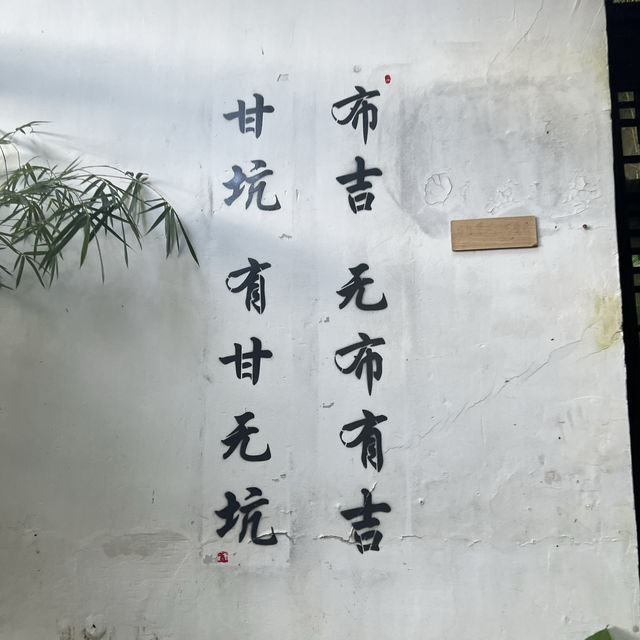 布吉 无布有吉
甘坑 有甘无坑